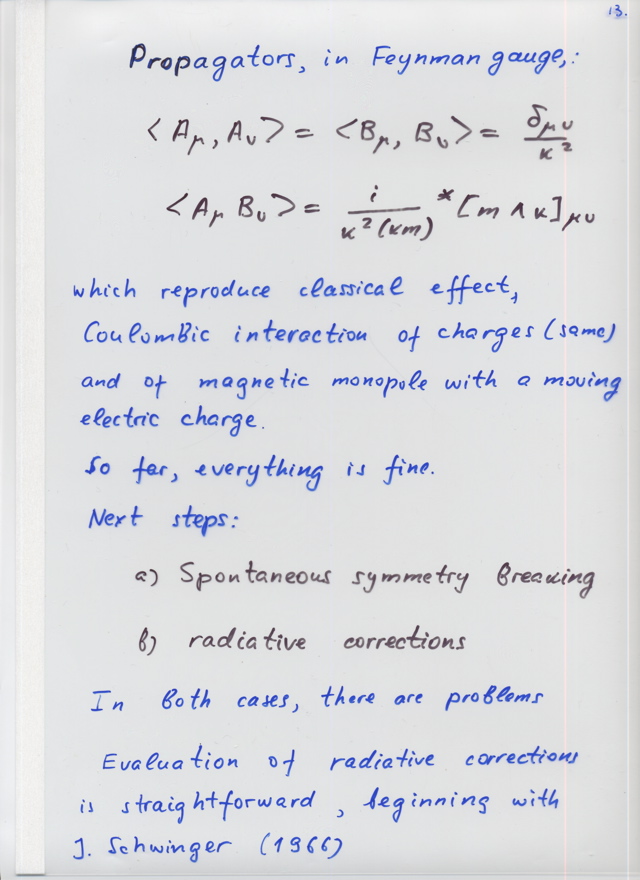 13.
Propagators, in Feynman gauge,:
<A_μ, A_ν> = <B_μ, B_ν> = δ_μν / k²
<A_μ B_ν> = i / k²(km) *[m ∧ k]_μν
which reproduce classical effect,
Coulombic interaction of charges (same)
and of magnetic monopole with a moving
electric charge.
So far, everything is fine.
Next steps:
a) Spontaneous symmetry breaking
b) radiative corrections
In both cases, there are problems
Evaluation of radiative corrections
is straightforward, beginning with
J. Schwinger (1966)